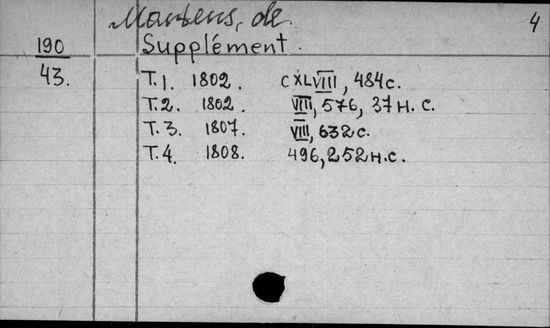 Martens, de
4
190
Supplément.
43.
T.1. 1802. CXLVIII, 484 с.
T.2. 1802. VIII, 576, 37 н. с.
T.3. 1807. VIII, 632 с.
T.4. 1808. 496, 252 н. с.